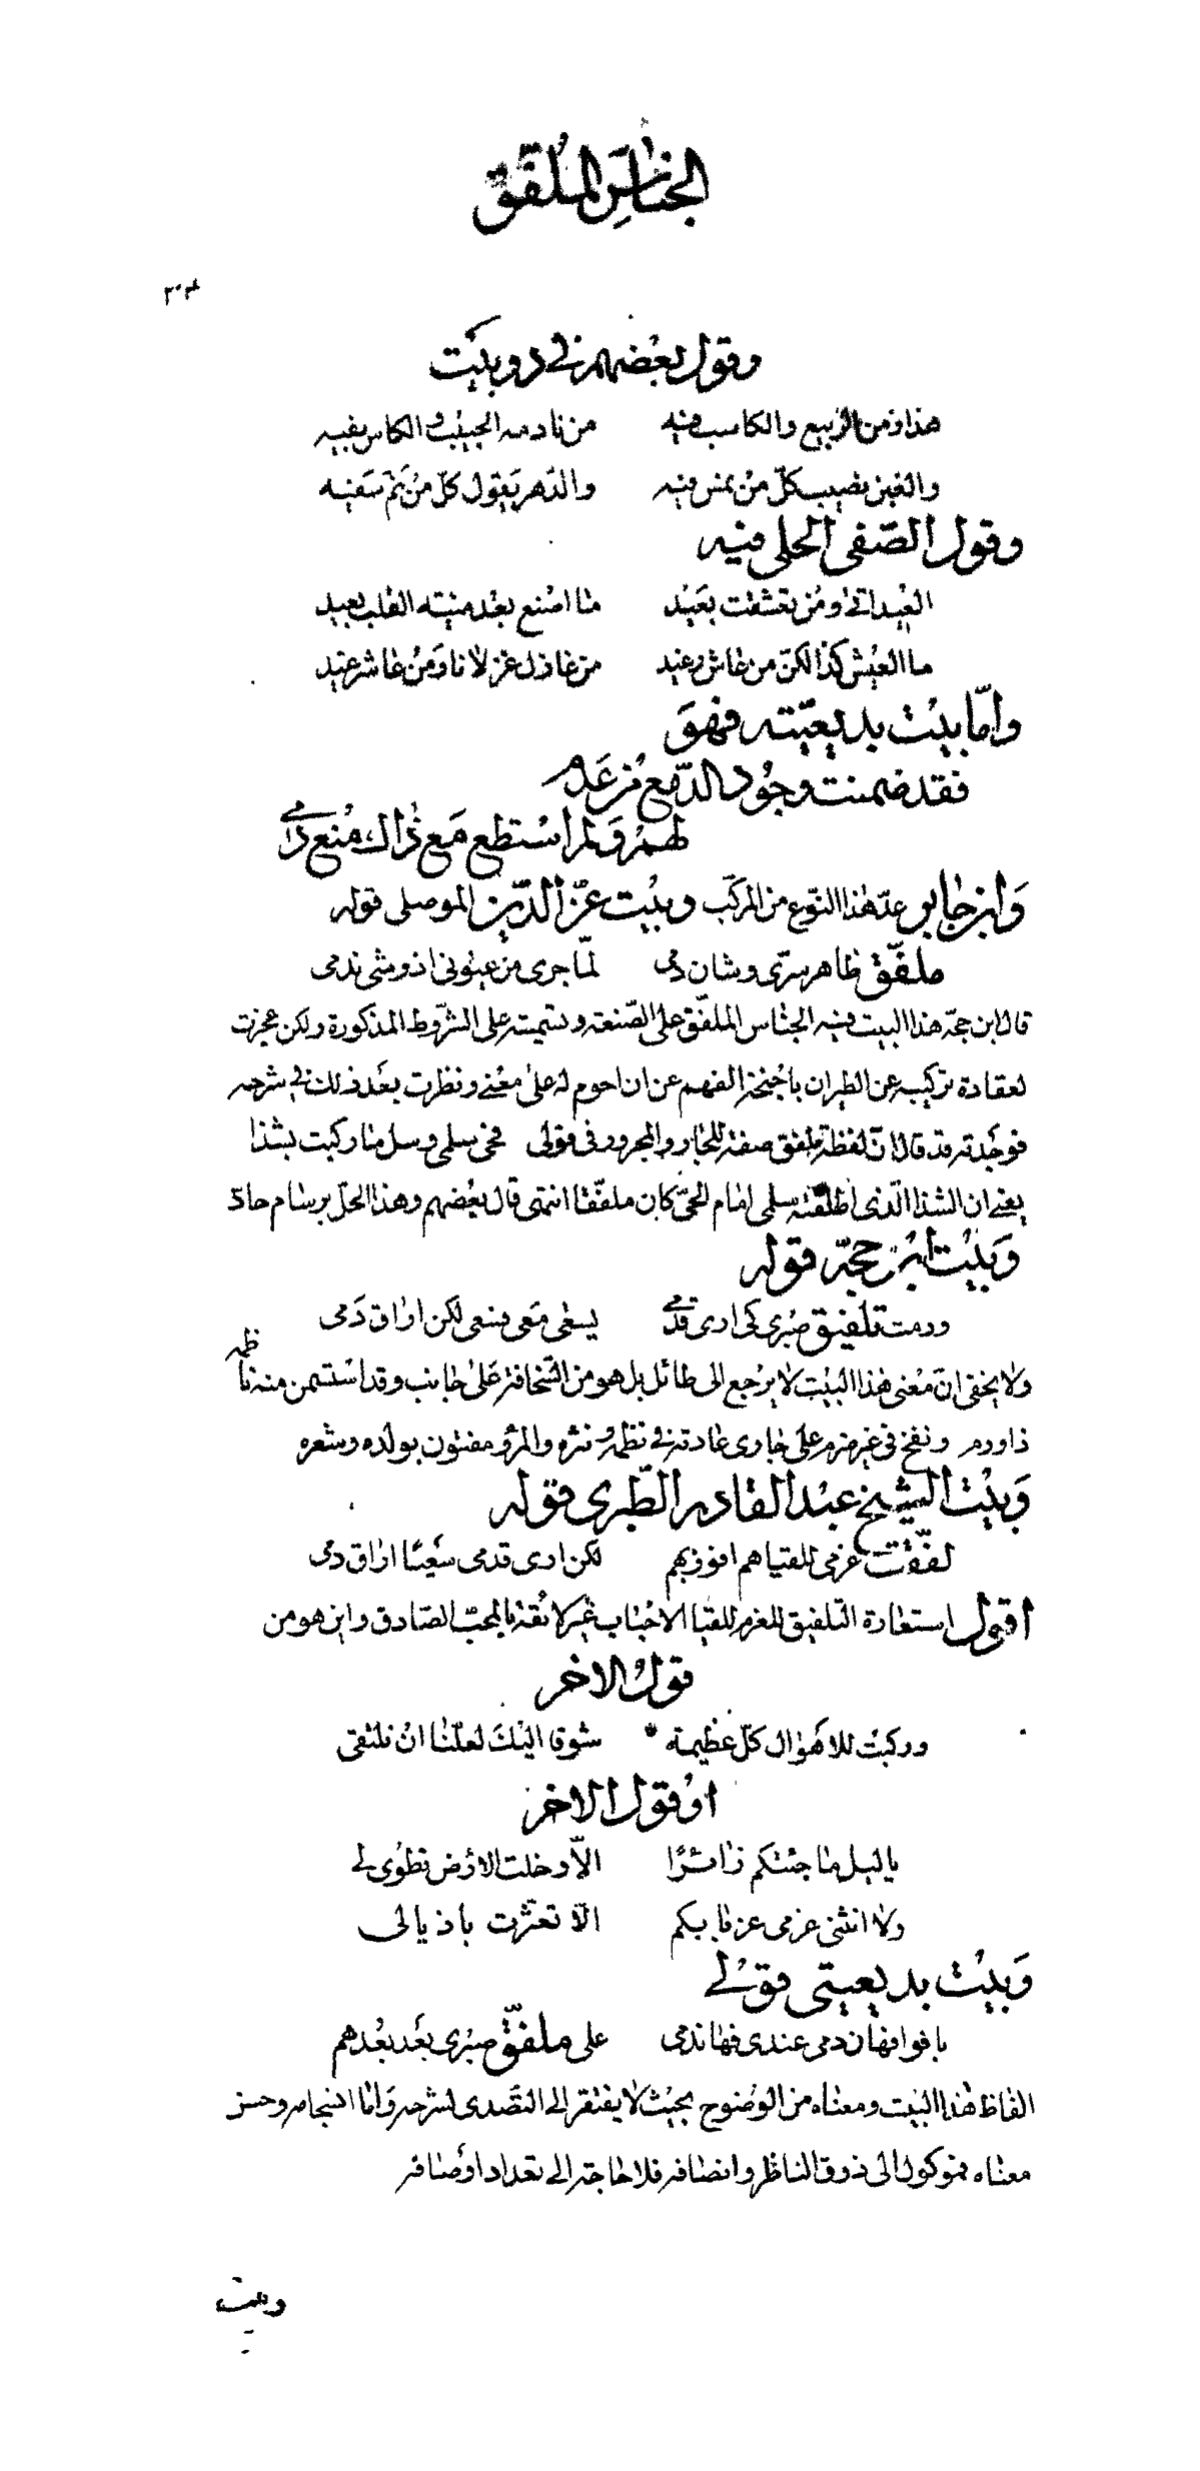 الجناس الملفق
وقول بعضهم في دوبيت
هذا زمن الربيع والكاسب فيه من نادمه الحبيب والكاس بفيه
والغبن نصيب كل من يمس فيه والدهر يقول كل من نم سفيه
وقول الصفي الحلي فيه
العيد اتى ومن تعشقت بعيد ما اصنع بعد منيته القلب بعيد
ما العيش كذا لكن من عاش رغيد من غازل غزلانا ومن عاشر غيد
واما بيت بديعيته فهو
فقد ضمنت وجود الدمع من عدم
لهم ولم استطع مع ذاك منع دمي
وابن جابر عد هذا النوع من المركب وبيت عز الدين الموصلي قوله
ملفق ظاهر سرى وشان دمى لما جرى من عيونى اذ وشى ندمى
قال ابن حجة هذا البيت فيه الجناس الملفق على الصنعة وتسميته على الشروط المذكورة ولكن عجزت
لعقادة تركيبه عن الطيران باجنحة الفهم عن ان احوم له على معنى ونظرت بعد ذلك في شرحه
فوجدته قد قال ان لفظة ملفق صفة للجار والمجرور فى قولى فحى سلمى وسل ما ركبت بشذا
يعني ان الشذا الذى اطلقته سلمى امام الحى كان ملفقا انتهى قال بعضهم وهذا الحل برسام حاد
وبيت ابن حجة قوله
ورمت تلفيق صبرى كى ارى قدمى يسعى معى فسعى لكن اراق دمى
ولا يخفى ان معنى هذا البيت لا يرجع الى طائل بل هو من السخافة على جانب وقد استسمن منه ناظمه
ذا ورم ونفخ فى غير ضرم على جارى عادته في نظمه ونثره والمرؤ مفتون بولده وشعره
وبيت الشيخ عبد القادر الطبرى قوله
لفقت عزمى للقياهم افوز بهم لكن ارى قدمى سعيا اراق دمى
اقول استعارة التلفيق للعزم للقيا الاحباب غير لائقة بالمحب الصادق واين هو من
قول الاخر
وركبت للاهوال كل عظيمة * شوقا اليك لعلنا ان نلتقى
او قول الاخر
يا ليل ما جئتكم زائرا الا وخلت الارض تطوى لي
ولا انثنى عزمى عن بابكم الا تعثرت باذيالى
وبيت بديعيتى قولي
بانوا فهان دمى عندى فها ندمى على ملفق صبرى بعد بعدهم
الفاظ هذا البيت ومعناه من الوضوح بحيث لا يفتقر الى التصدى لشرحه واما انسجامه وحسن
معناه فموكول الى ذوق الناظر وانصافه فلا حاجة الى تعداد اوصافه
وبيت